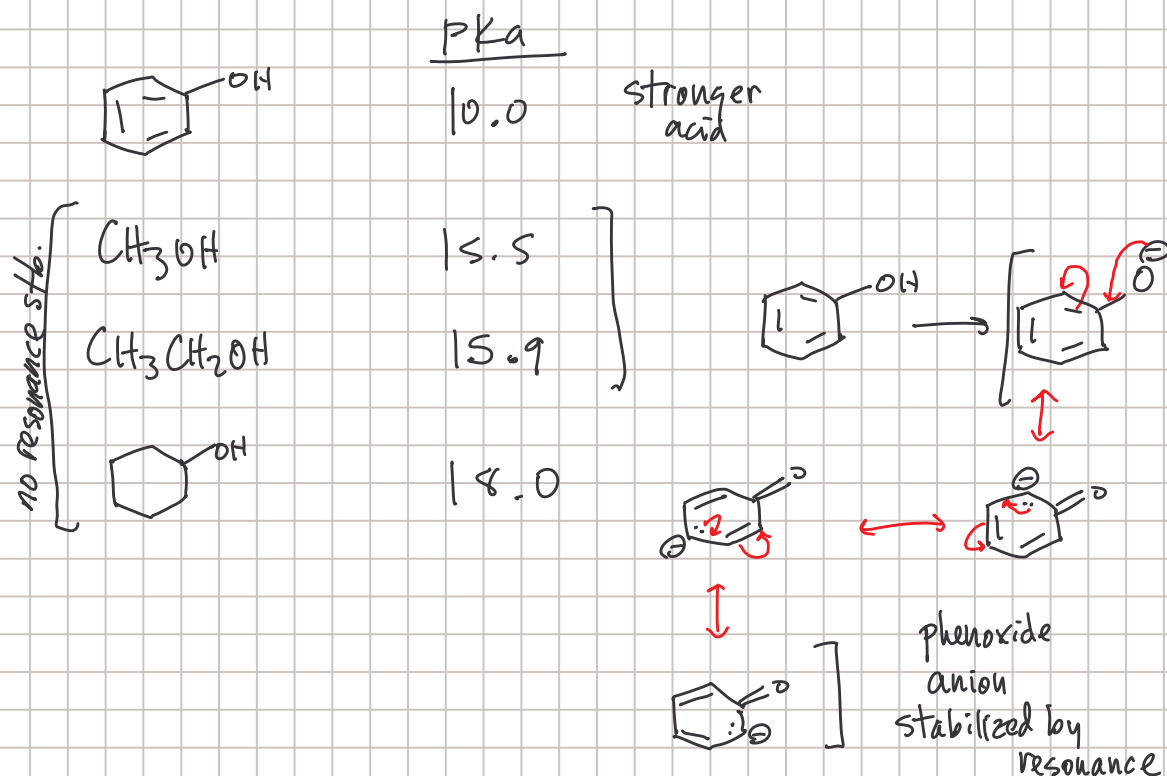 pKa
OH
10.0
stronger
acid
no resonance stb.
CH3OH
15.5
CH3CH2OH
15.9
OH
18.0
OH
⊖
O
⊖
O
O
⊖
O
⊖
phenoxide
anion
stabilized by
resonance